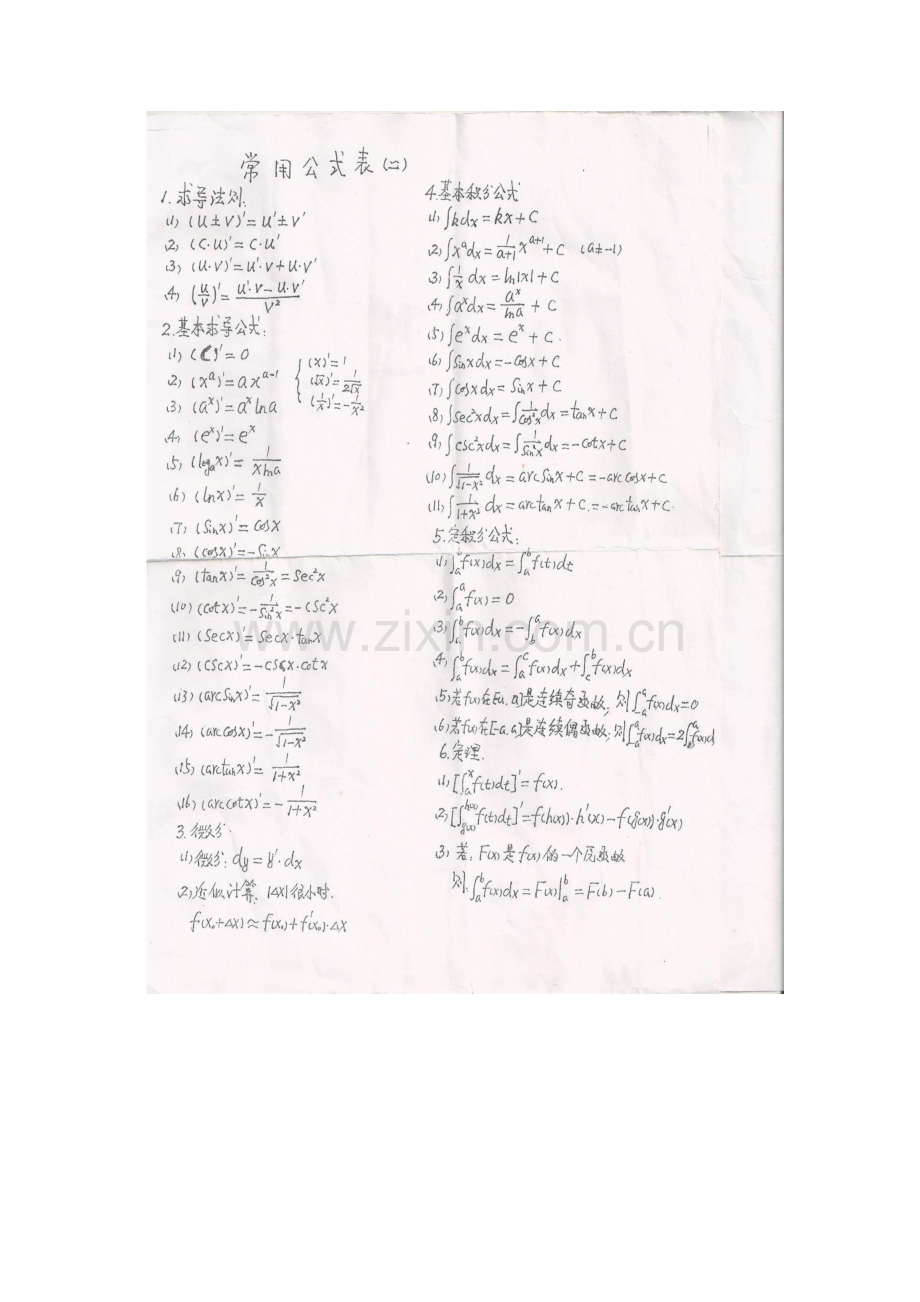 常用公式表(二)
1.求导法则:
(1) (u±v)'=u'±v'
(2) (c·u)'=c·u'
(3) (u·v)'=u'·v+u·v'
(4) (u/v)'=(u'·v-u·v')/v²
2.基本求导公式:
(1) (c)'=0
(2) (xᵃ)'=axᵃ⁻¹ { (x)'=1
(√x)'=1/(2√x)
(1/x)'=-1/x²
(3) (aˣ)'=aˣlna
(4) (eˣ)'=eˣ
(5) (logₐx)'=1/(xlna)
(6) (lnx)'=1/x
(7) (sinx)'=cosx
(8) (cosx)'=-sinx
(9) (tanx)'=1/cos²x=sec²x
(10) (cotx)'=-1/sin²x=-csc²x
(11) (secx)'=secx·tanx
(12) (cscx)'=-cscx·cotx
(13) (arcsinx)'=1/√(1-x²)
(14) (arccosx)'=-1/√(1-x²)
(15) (arctanx)'=1/(1+x²)
(16) (arccotx)'=-1/(1+x²)
3.微分:
(1) 微分: dy=y'·dx
(2) 近似计算, |Δx|很小时.
f(x₀+Δx)≈f(x₀)+f'(x₀)·Δx
4.基本积分公式
(1) ∫kdx=kx+C
(2) ∫xᵃdx=1/(a+1) xᵃ⁺¹+C (a≠-1)
(3) ∫1/x dx=ln|x|+C
(4) ∫aˣdx=aˣ/lna+C
(5) ∫eˣdx=eˣ+C.
(6) ∫sinxdx=-cosx+C
(7) ∫cosxdx=sinx+C
(8) ∫sec²xdx=∫1/cos²x dx=tanx+C
(9) ∫csc²xdx=∫1/sin²x dx=-cotx+C
(10) ∫1/√(1-x²) dx=arcsinx+C=-arccosx+C
(11) ∫1/(1+x²) dx=arctanx+C=-arctanx+C.
5.定积分公式:
(1) ∫ₐᵇf(x)dx=∫ₐᵇf(t)dt
(2) ∫ₐᵃf(x)=0
(3) ∫ₐᵇf(x)dx=-∫_b^a f(x)dx
(4) ∫ₐᵇf(x)dx=∫_a^c f(x)dx+∫_c^b f(x)dx
(5) 若f(x)在[-a,a]是连续奇函数, 则∫_{-a}^a f(x)dx=0
(6) 若f(x)在[-a,a]是连续偶函数, 则∫_{-a}^a f(x)dx=2∫_0^a f(x)d
6.定理.
(1) [∫_a^x f(t)dt]'=f(x).
(2) [∫_{g(x)}^{h(x)} f(t)dt]'=f(h(x))·h'(x)-f(g(x))·g'(x)
(3) 若, F(x)是f(x)的一个原函数
则: ∫ₐᵇf(x)dx=F(x)|ₐᵇ=F(b)-F(a).
www.zixin.com.cn